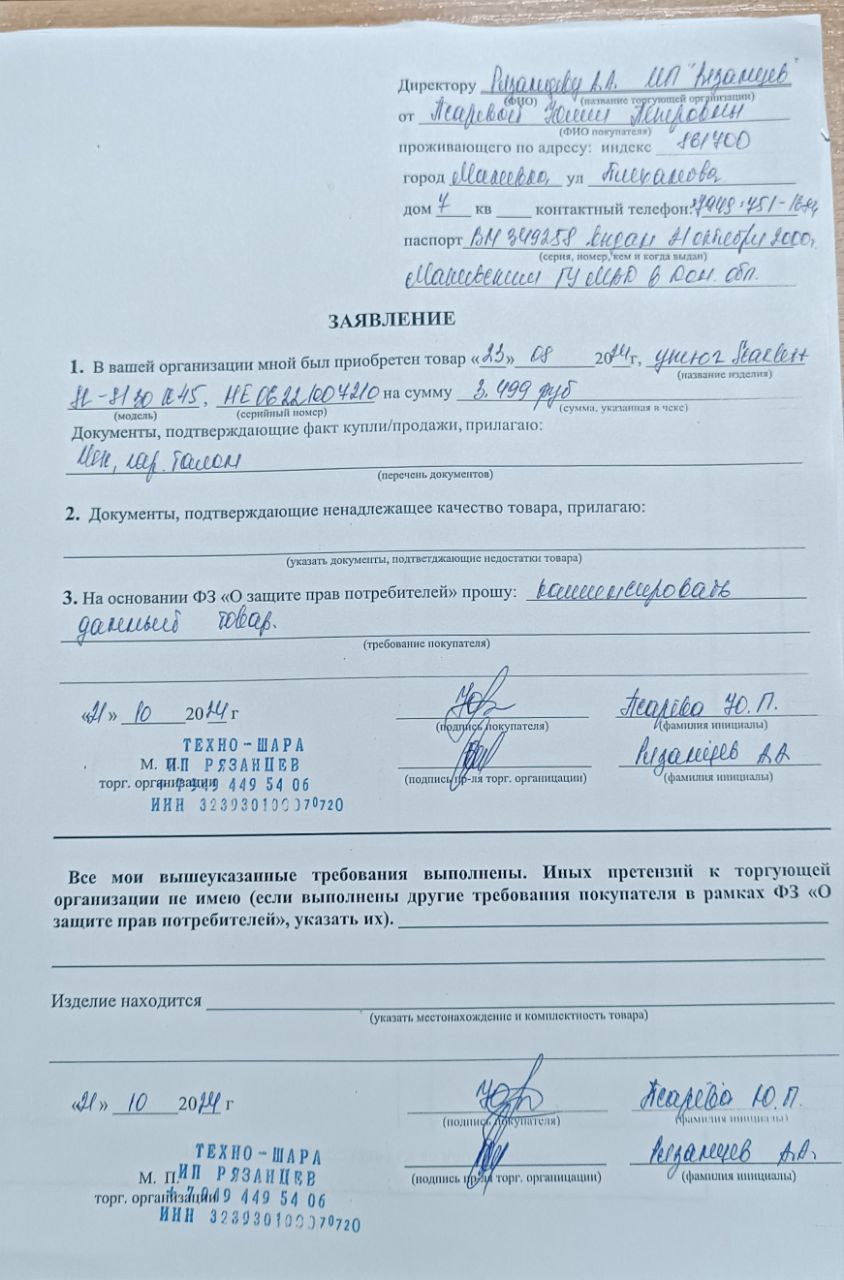 Директору Рязанцеву А.А. ИП "Рязанцев"
(ФИО) (название торгующей организации)
от Псаревой Юлии Петровны
(ФИО покупателя)
проживающего по адресу: индекс 861700
город Макеевка, ул Плеханова
дом 7 кв контактный телефон:
паспорт ВМ 349258 выдан 21 октября 2000г.
(серия, номер, кем и когда выдан)
Макеевским ГУ МВД в Дон. обл.
ЗАЯВЛЕНИЕ
1. В вашей организации мной был приобретен товар «23» 08 2024г, утюг Scarlett
(название изделия)
на сумму 3.499 руб
(модель) (серийный номер) (сумма, указанная в чеке)
Документы, подтверждающие факт купли/продажи, прилагаю:
Чек, гар. талон
(перечень документов)
2. Документы, подтверждающие ненадлежащее качество товара, прилагаю:
(указать документы, подтветджающие недостатки товара)
3. На основании ФЗ «О защите прав потребителей» прошу: компенсировать
данный товар.
(требование покупателя)
«21» 10 2024 г Псарёва Ю.П.
(подпись покупателя) (фамилия инициалы)
ТЕХНО-ШАРА
М. П. ИП РЯЗАНЦЕВ Рязанцев АА
торг. организации +7 949 449 54 06 (подпись пр-ля торг. органицации) (фамилия инициалы)
ИНН
Все мои вышеуказанные требования выполнены. Иных претензий к торгующей
организации не имею (если выполнены другие требования покупателя в рамках ФЗ «О
защите прав потребителей», указать их).
Изделие находится
(указать местонахождение и комплектность товара)
«21» 10 2024 г Псарёва Ю.П.
(подпись покупателя) (фамилия инициалы)
ТЕХНО-ШАРА Рязанцев А.А.
М. П. ИП РЯЗАНЦЕВ (подпись пр-ля торг. органицации) (фамилия инициалы)
торг. организации +7 949 449 54 06
ИНН